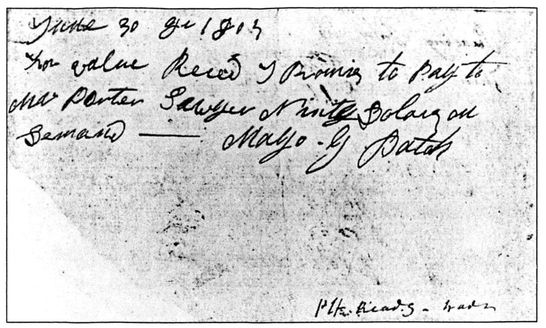 June 30 1813
For value Recd I Promis to Pay to
Mr Porter Sawyer Ninty Dolars on
Demand — Mayo - G Patch